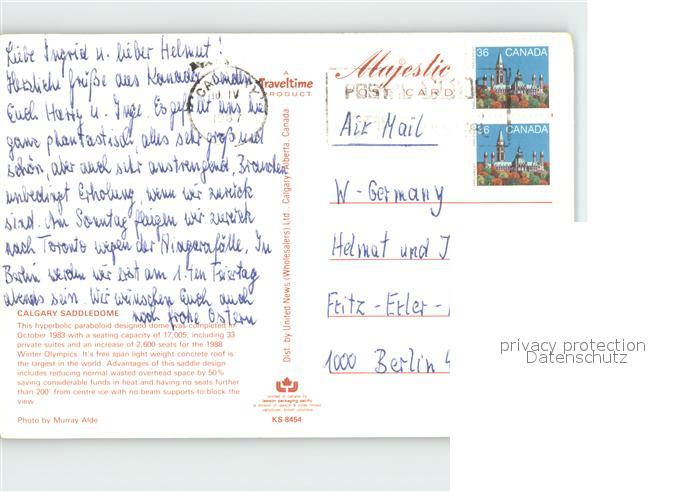 Liebe Ingrid u. lieber Helmut!
Herzliche Grüße aus Kanada senden
Euch Harry u. Inge. Es gefällt uns hier
ganz phantastisch, alles sehr groß und
schön, aber auch sehr anstrengend. Brauchen
unbedingt Erholung, wenn wir zurück
sind. Am Sonntag fliegen wir zurück
nach Toronto wegen der Niagarafälle. In
Berlin werden wir erst am 1.ten Feiertag
abends sein. Wir wünschen Euch auch
noch frohe Ostern
CALGARY SADDLEDOME
This hyperbolic paraboloid designed dome was completed in
October 1983 with a seating capacity of 17,005, including 33
private suites and an increase of 2,600 seats for the 1988
Winter Olympics. It's free span light weight concrete roof is
the largest in the world. Advantages of this saddle design
includes reducing normal wasted overhead space by 50%
saving considerable funds in heat and having no seats further
than 200' from centre ice with no beam supports to block the
view.
Photo by Murray Alde
A
Traveltime
PRODUCT
Dist. by United News (Wholesalers) Ltd. Calgary, Alberta, Canada
printed in canada by
lawson packaging pacific
a division of lawson & jones limited
vancouver, british columbia
KS-8454
CALGARY
IV
1987
Majestic
POST CARD
36 CANADA
36 CANADA
Air Mail
W-Germany
Helmut und I
Fritz-Erler-
1000 Berlin 4
privacy protection
Datenschutz